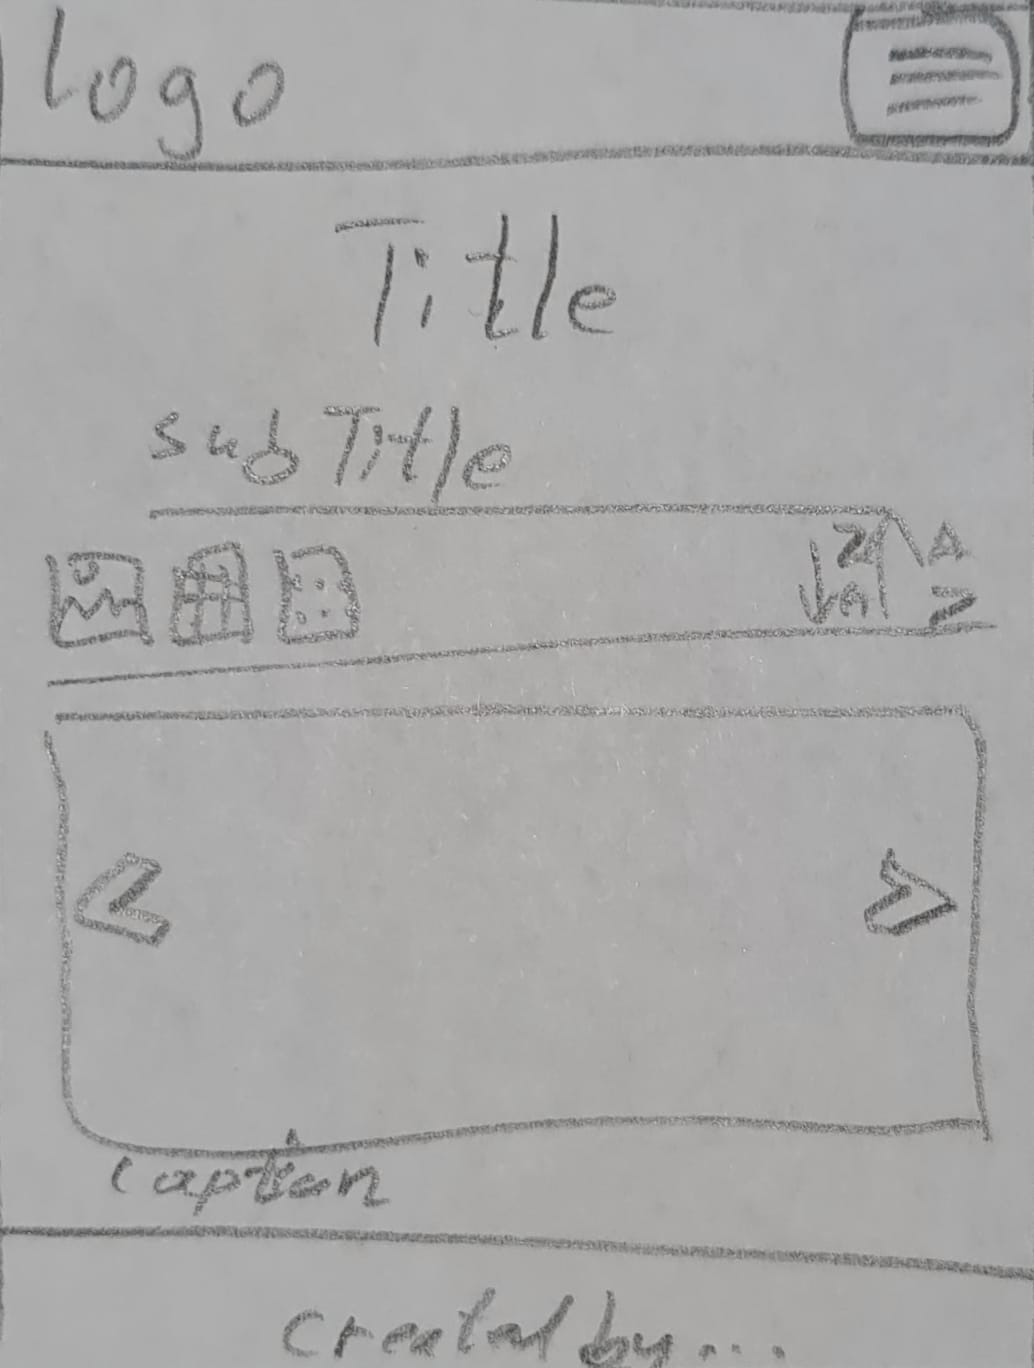 Logo
Title
subTitle
Z A
A Z
Caption
created by...